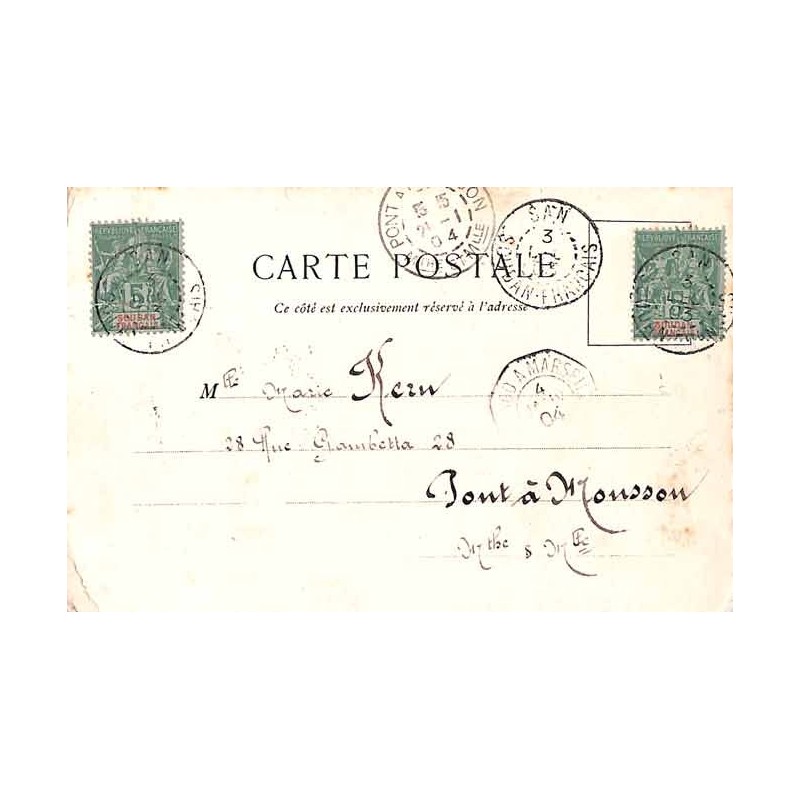 PONT A
21 - 1
04
SAN
3
SOUDAN-FRANÇAIS
REPUBLIQUE FRANÇAISE
SAN
5
SOUDAN
FRANÇAIS
REPUBLIQUE FRANÇAISE
SAN
3
03
CARTE POSTALE
Ce côté est exclusivement réservé à l'adresse
Mlle Marie Kern
A MARSEI
4
04
28 Rue Gambetta 28
Pont à Mousson
Mthe & Mlle